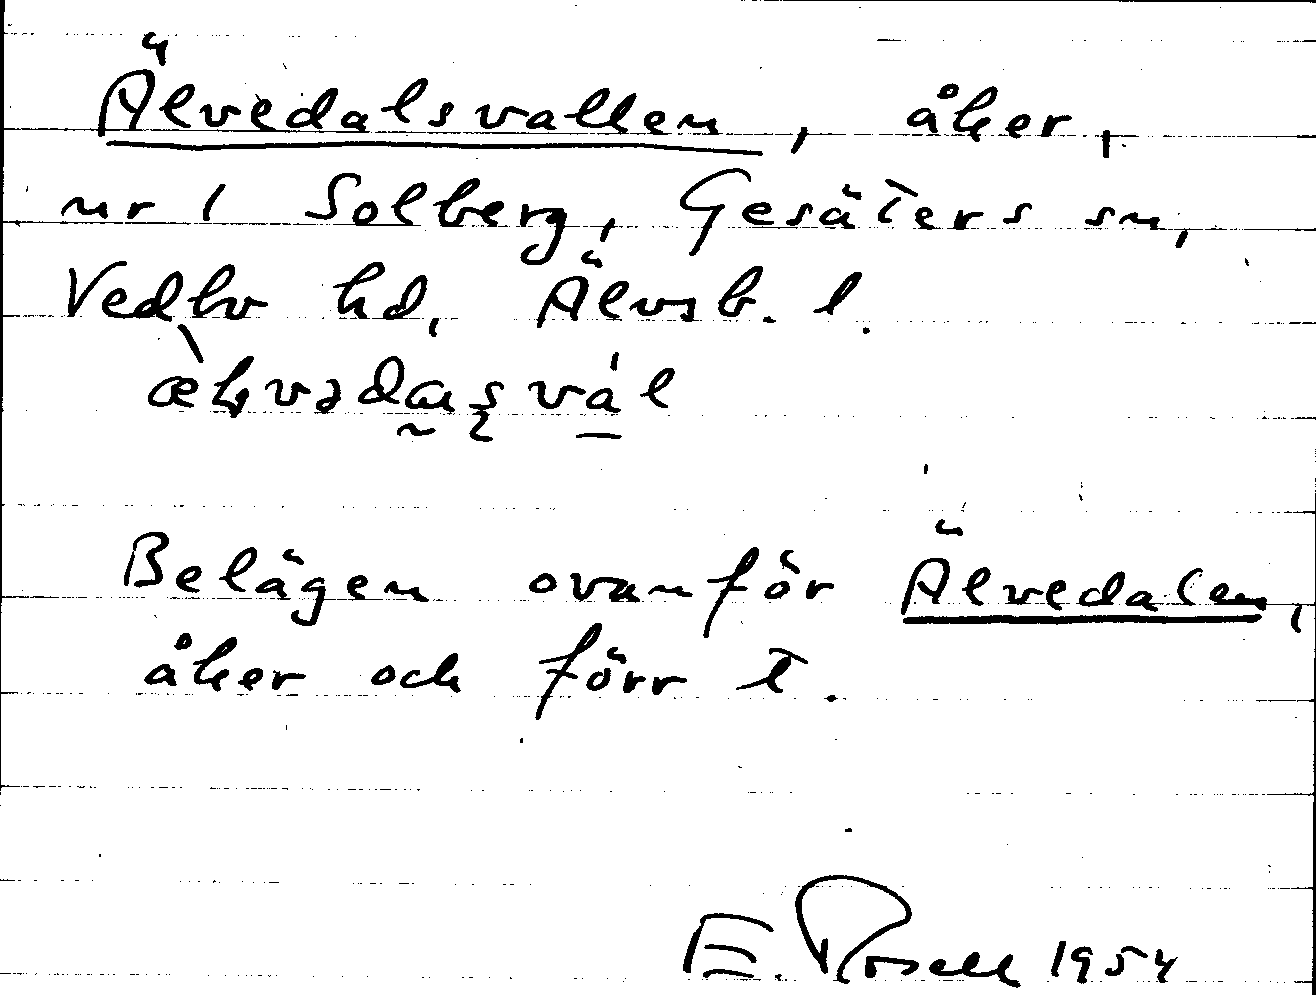 Älvedalsvallen, åker,
nr 1 Solberg, Gesäters sn,
Vedbo hd, Älvsb. l.
Belägen ovanför Älvedalen,
åker och förr t.
E. Rosell 1954